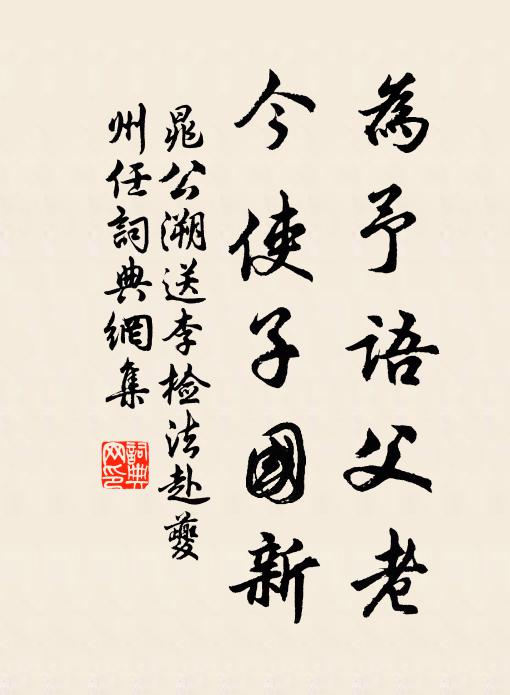 為予語父老
今使子國新
晁公溯送李檢法赴夔
州任詞典網集
詞典
网印